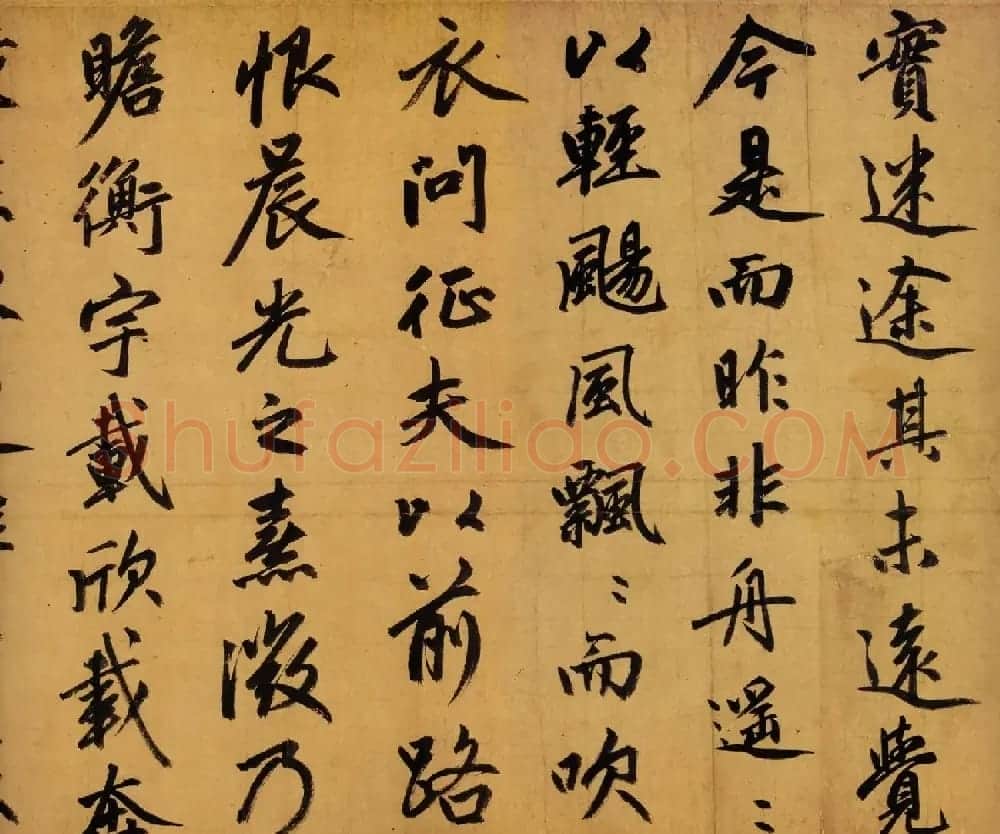 實迷途其未遠覺
今是而昨非舟遙〻
以輕颺風飄〻而吹
衣問征夫以前路
恨晨光之熹微乃
瞻衡宇載欣載奔
Shufazilido.COM